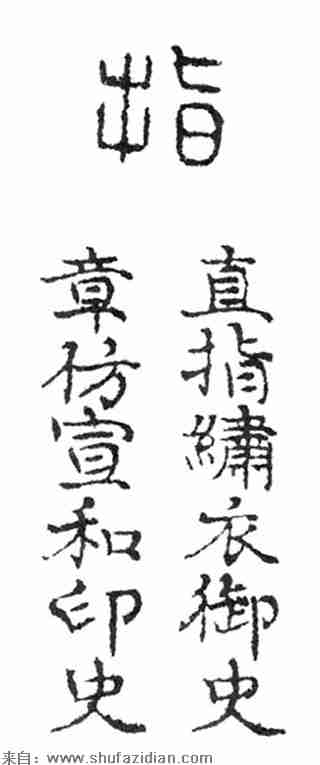 指
直指繡衣御史
章仿宣和印史
来自：www.shufazidian.com